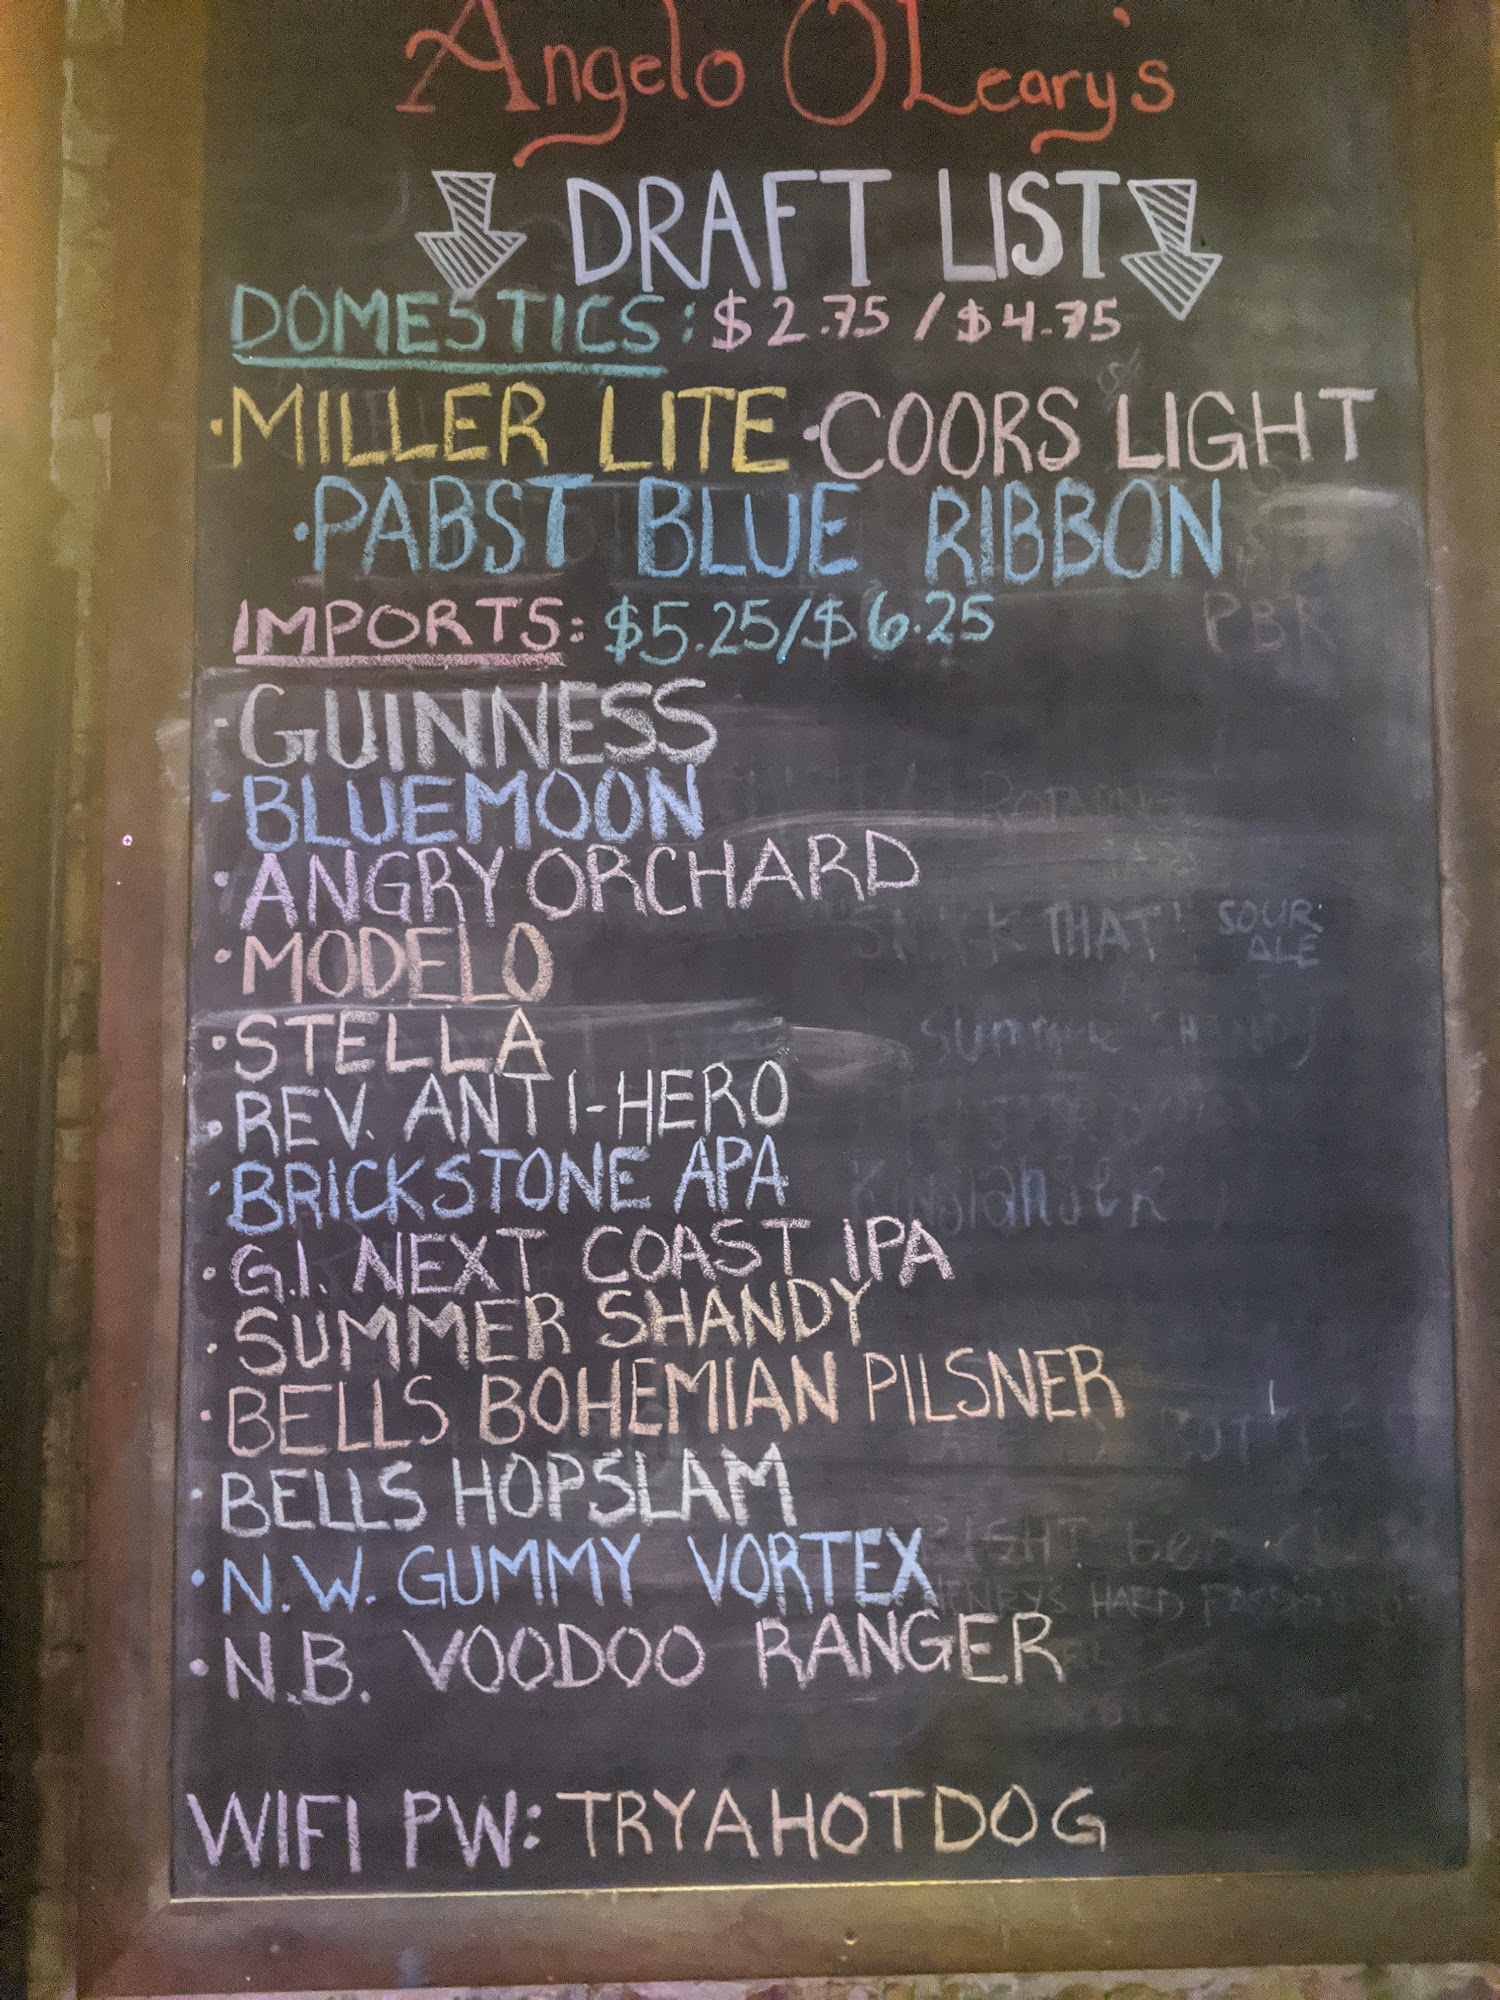 Angelo O'Leary's
DRAFT LIST
DOMESTICS: $2.75 / $4.75
·MILLER LITE ·COORS LIGHT
·PABST BLUE RIBBON
IMPORTS: $5.25/$6.25
PBR
·GUINNESS
·BLUEMOON
·ANGRY ORCHARD
·MODELO
THAT SOUR ALE
·STELLA
·REV. ANTI-HERO
·BRICKSTONE APA
·G.I. NEXT COAST IPA
·SUMMER SHANDY
·BELLS BOHEMIAN PILSNER
·BELLS HOPSLAM
·N.W. GUMMY VORTEX
HENRY'S HARD
·N.B. VOODOO RANGER
WIFI PW: TRYAHOTDOG